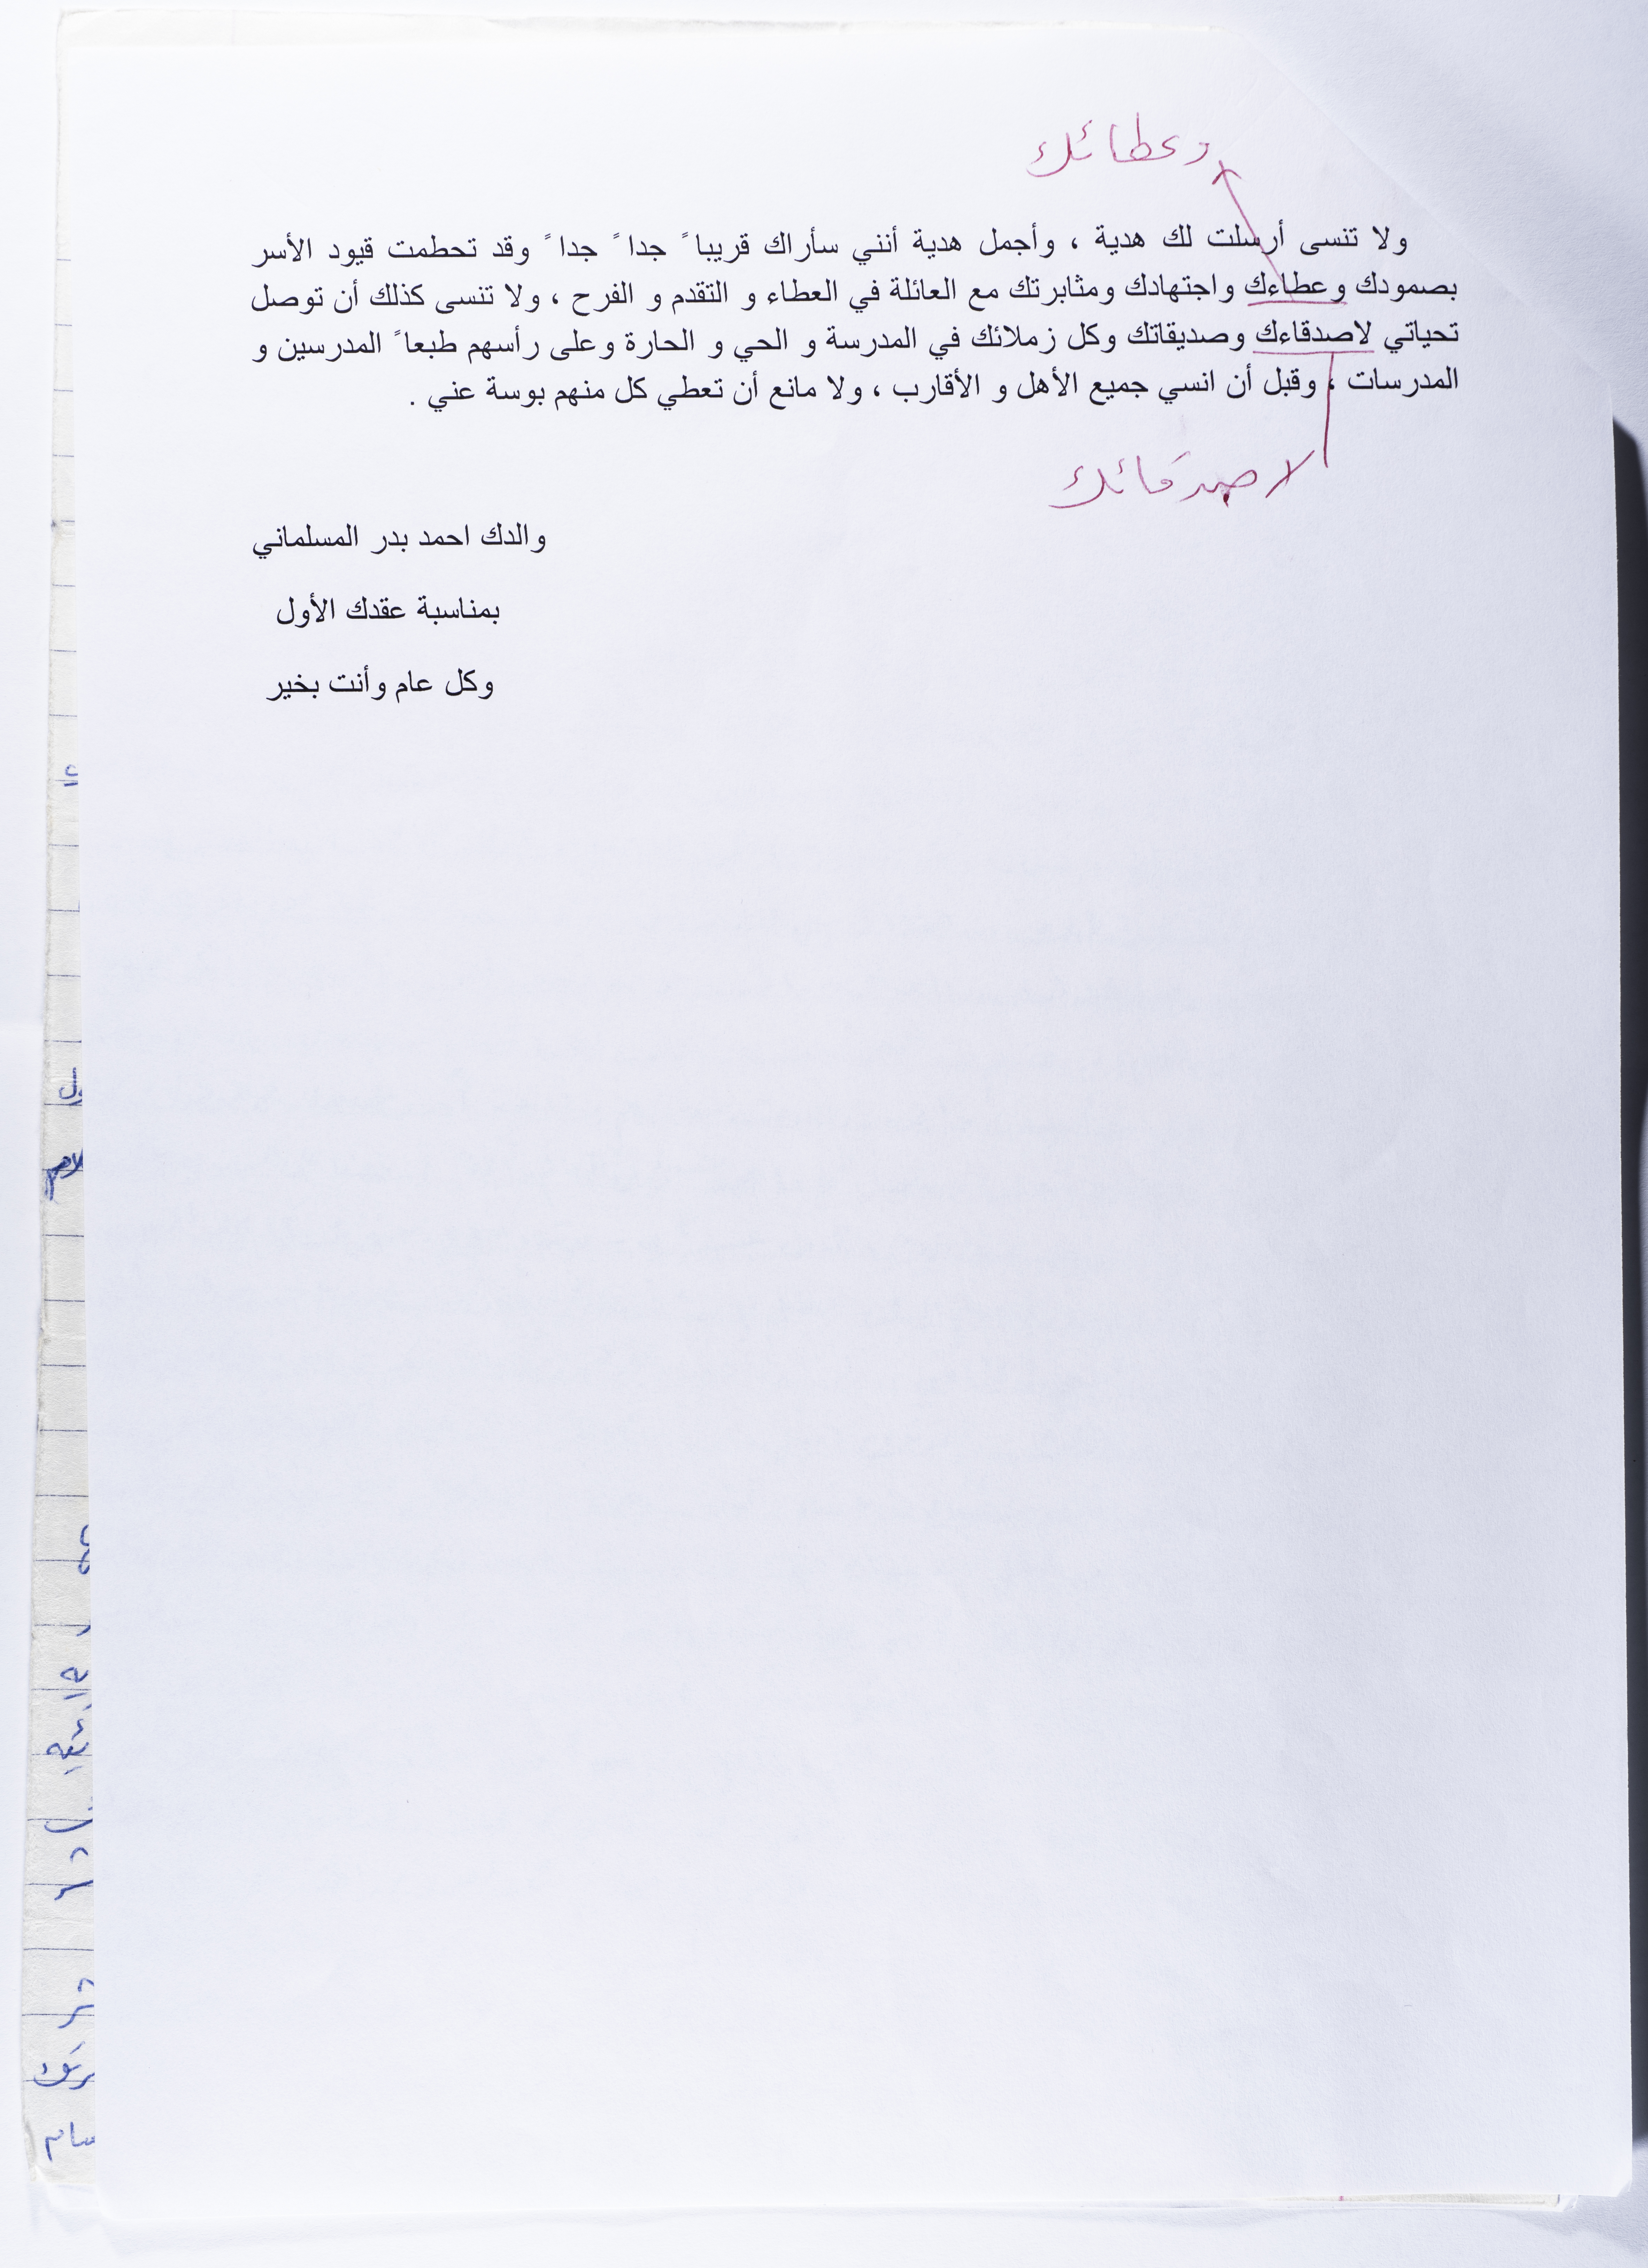 وعطائك
ولا تنسى أرسلت لك هدية ، وأجمل هدية أنني سأراك قريبا ً جدا ً جدا ً وقد تحطمت قيود الأسر
بصمودك وعطاءك واجتهادك ومثابرتك مع العائلة في العطاء و التقدم و الفرح ، ولا تنسى كذلك أن توصل
تحياتي لاصدقاءك وصديقاتك وكل زملائك في المدرسة و الحي و الحارة وعلى رأسهم طبعا ً المدرسين و
المدرسات ، وقبل أن انسي جميع الأهل و الأقارب ، ولا مانع أن تعطي كل منهم بوسة عني .
لاصدقائك
والدك احمد بدر المسلماني
بمناسبة عقدك الأول
وكل عام وأنت بخير